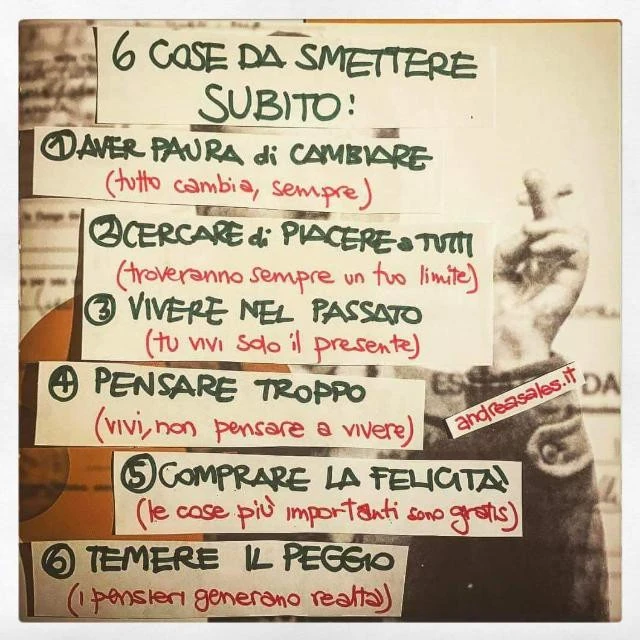 6 COSE DA SMETTERE
SUBITO!
① AVER PAURA di CAMBIARE
(tutto cambia, sempre)
② CERCARE di PIACERE a TUTTI
(troveranno sempre un tuo limite)
③ VIVERE NEL PASSATO
(tu vivi solo il presente)
④ PENSARE TROPPO
(vivi, non pensare a vivere)
andreasales.it
⑤ COMPRARE LA FELICITA'
(le cose più importanti sono gratis)
⑥ TEMERE IL PEGGIO
(i pensieri generano realtà)